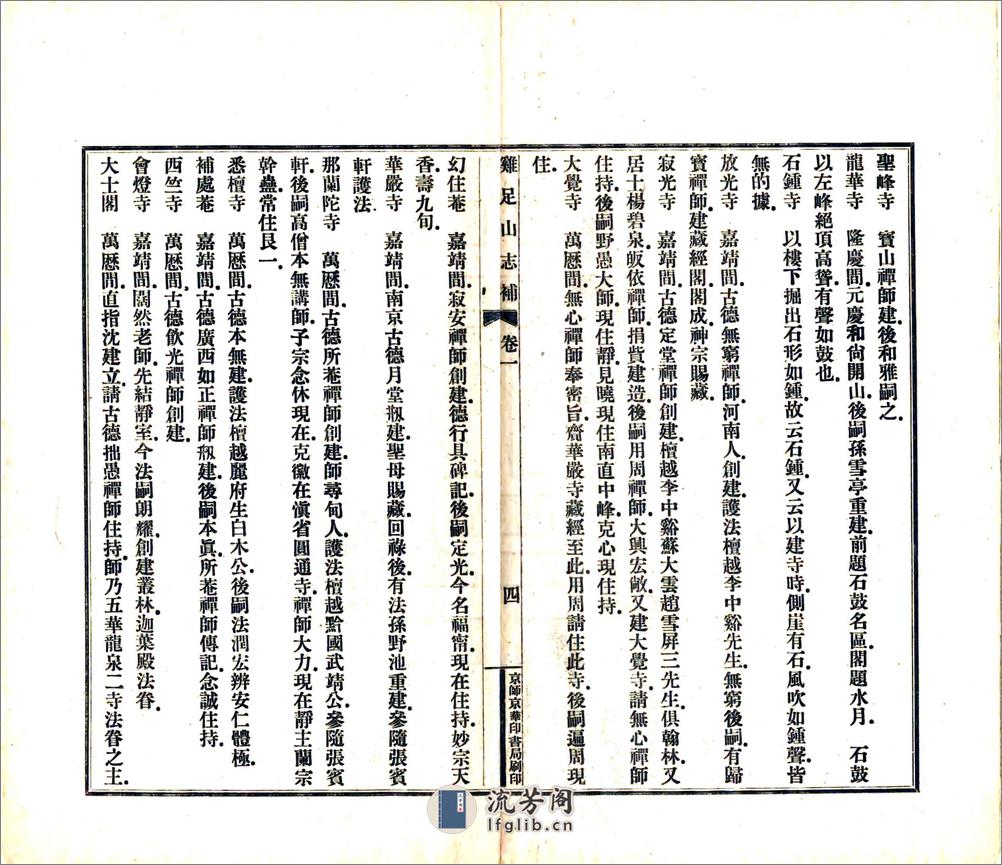 聖峰寺　寶山禪師建後和雅嗣之.
龍華寺　隆慶間.元慶和尙開山.後嗣孫雪亭重建.前題石鼓名區.閣題水月.　石鼓
以左峰絕頂高聳.有聲如鼓也.
石鍾寺　以樓下掘出石形如鍾.故云石鍾.又云以建寺時.側崖有石.風吹如鍾聲.皆
無的據.
放光寺　嘉靖間.古德無窮禪師.河南人創建.護法檀越李中谿先生.無窮後嗣.有歸
寶禪師建藏經閣.閣成.神宗賜藏.
寂光寺　嘉靖間.古德定堂禪師創建.檀越李中谿蘇大雲趙雪屏三先生.俱翰林.又
居士楊碧泉.皈依禪師.捐貲建造.後嗣用周禪師.大興宏敞.又建大覺寺.請無心禪師
住持.後嗣野愚大師.現住靜.見曉現住南直中峰.克心現住持.
大覺寺　萬歷間.無心禪師奉密旨.齎華嚴寺藏經至此.用周請住此寺.後嗣遍周現
住.
雞足山志補　卷一　四　京師京華印書局刷印
幻住菴　嘉靖間.寂安禪師創建.德行具碑記.後嗣定光.今名福甯.現在住持.妙宗天
香.壽九旬.
華嚴寺　嘉靖間.南京古德月堂剏建.聖母賜藏.回祿後.有法孫野池重建.參隨張賓
軒護法
那蘭陀寺　萬歷間.古德所菴禪師創建.師尋甸人.護法檀越黔國武靖公.參隨張賓
軒.後嗣高僧本無講師.子宗念休現在.克徽在滇省圓通寺.禪師大力.現在靜主蘭宗
幹蠱常住良一.
悉檀寺　萬歷間.古德本無建.護法檀越麗府生白木公.後嗣法潤宏辨安仁體極.
補處菴　嘉靖間.古德廣西如正禪師剏建.後嗣本眞.所菴禪師傳記.念誠住持.
西竺寺　萬歷間.古德飮光禪師創建.
會燈寺　嘉靖間.闊然老師.先結靜室.今法嗣朗耀.創建叢林.迦葉殿法眷.
大士閣　萬歷間.直指沈建立.請古德拙愚禪師住持.師乃五華龍泉二寺法眷之主.
流芳阁
lfglib.cn